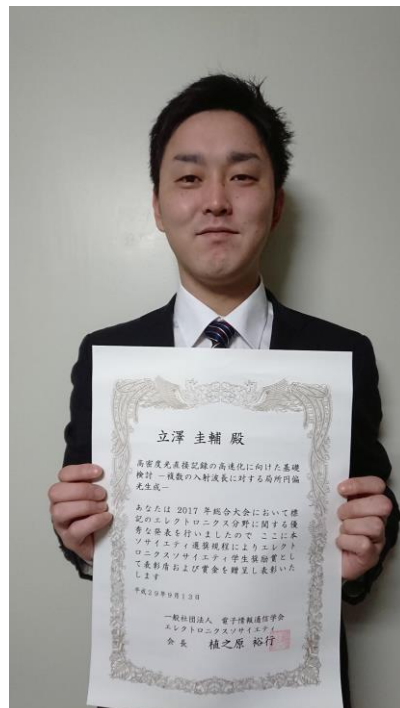 立澤 圭輔 殿
高密度光直接記録の高速化に向けた基礎
検討 ―複数の入射波長に対する局所円偏
光生成―
あなたは 2017 年総合大会において標
記のエレクトロニクス分野に関する優
秀な発表を行いましたので ここに本
ソサイエティ選奨規程によりエレクト
ロニクスソサイエティ学生奨励賞とし
て表彰盾および賞金を贈呈し表彰いた
します
平成29年9月13日
一般社団法人 電子情報通信学会
エレクトロニクスソサイエティ
会 長 植之原 裕行